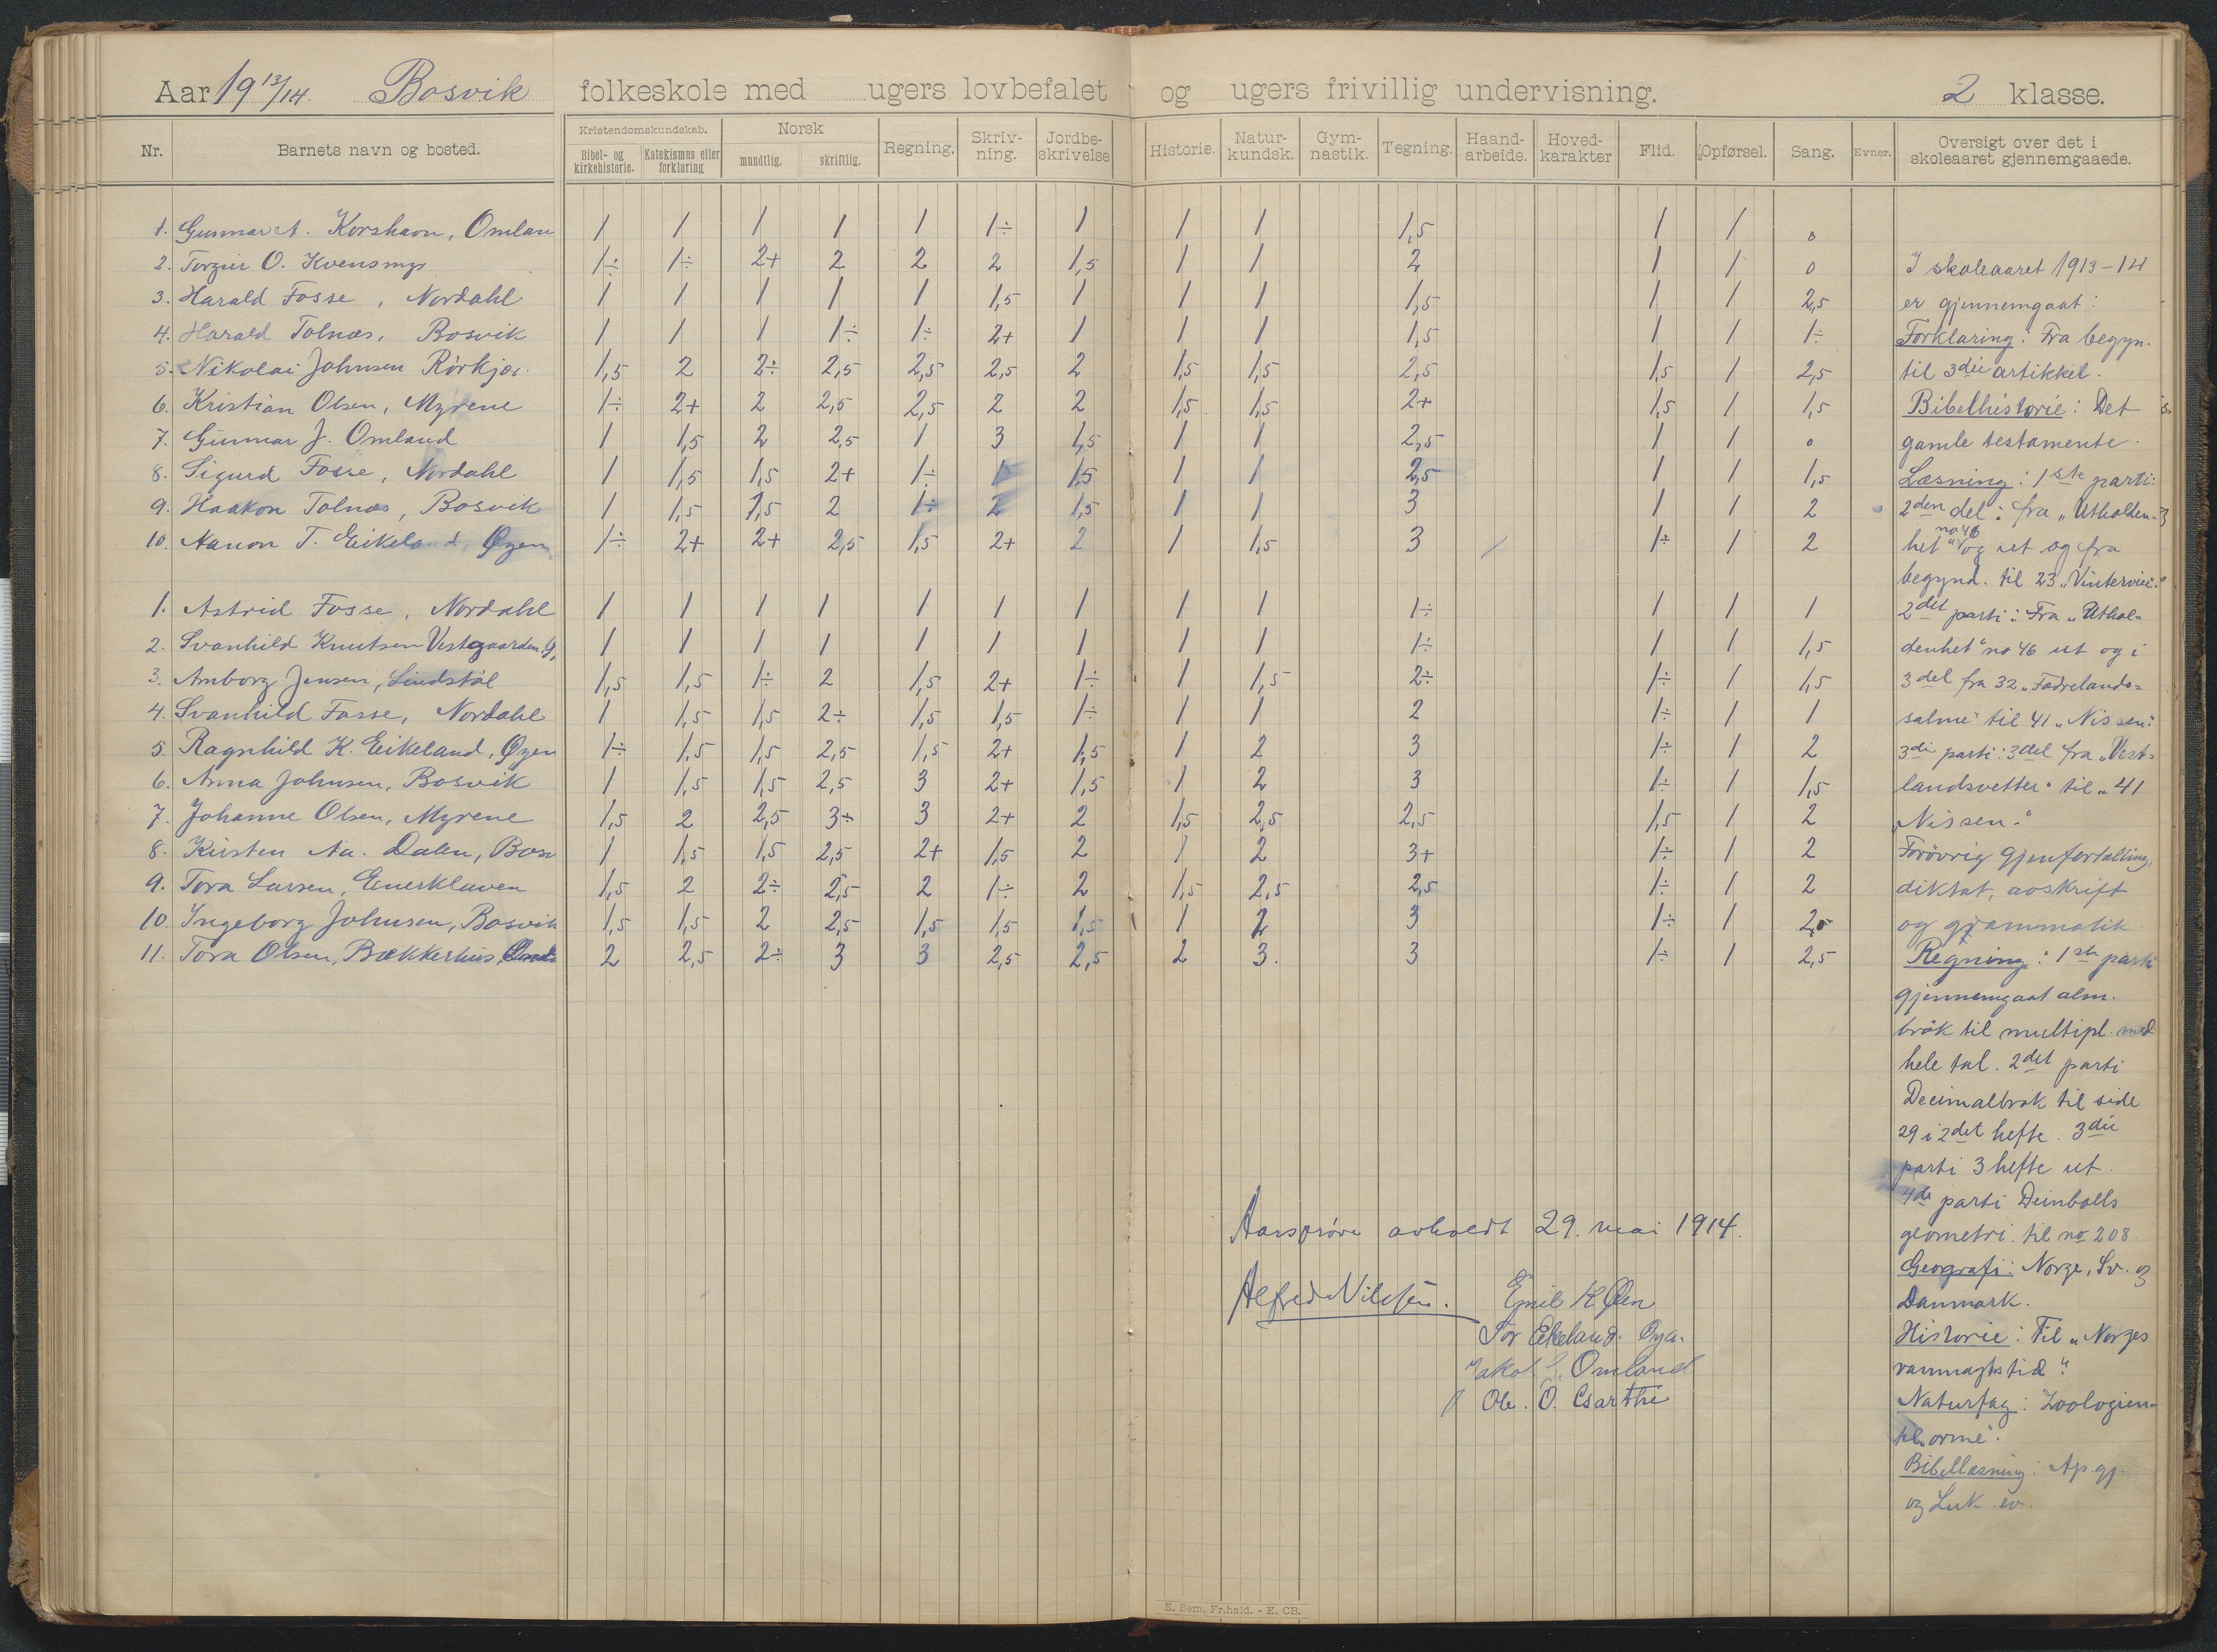 Aar 19 13/14. Bosvik folkeskole med ugers lovbefalet og ugers frivillig undervisning. 2 klasse.
Nr. Barnets navn og bosted. Kristendomskundskab. Bibel- og kirkehistorie. Katekismus eller forklaring Norsk mundtlig. skriftlig. Regning. Skrivning. Jordbeskrivelse Historie. Naturkundsk. Gymnastik. Tegning. Haandarbeide. Hovedkarakter Flid. Opførsel. Sang. Evner. Oversigt over det i skoleaaret gjennemgaaede.
1. Gunnar A. Korshavn, Omlan 1 1 1 1 1 1÷ 1 1 1 1,5 1 1 0
2. Torgeir O. Kvensmyr 1÷ 1÷ 2+ 2 2 2 1,5 1 1 2 1 1 0
3. Harald Fosse, Nordahl 1 1 1 1 1 1,5 1 1 1 1,5 1 1 2,5
4. Harald Tolnæs, Bosvik 1 1 1 1÷ 1÷ 2+ 1 1 1 1,5 1 1 1÷
5. Nikolai Johnsen Rörkjær. 1,5 2 2÷ 2,5 2,5 2,5 2 1,5 1,5 2,5 1,5 1 2,5
6. Kristian Olsen, Myrene 1÷ 2+ 2 2,5 2,5 2 2 1,5 1,5 2+ 1,5 1 1,5
7. Gunnar J. Omland 1 1,5 2 2,5 1 3 1,5 1 1 2,5 1 1 0
8. Sigurd Fosse, Nordahl 1 1,5 1,5 2+ 1÷ 1 1,5 1 1 2,5 1 1 1,5
9. Haakon Tolnæs, Bosvik 1 1,5 1,5 2 1÷ 2 1,5 1 1 3 1 1 2
10. Aanon T. Eikeland, Øyen 1÷ 2+ 2+ 2,5 1,5 2+ 2 1 1,5 3 1÷ 1 2
1. Astrid Fosse, Nordahl 1 1 1 1 1 1 1 1 1 1÷ 1 1 1
2. Svanhild Knutsen Vestegaarden 1 1 1 1 1 1 1 1 1 1÷ 1 1 1,5
3. Anborg Jensen, Lindstøl 1,5 1,5 1÷ 2 1,5 2+ 1÷ 1 1,5 2÷ 1÷ 1 1,5
4. Svanhild Fosse, Nordahl 1 1,5 1,5 2÷ 1,5 1,5 1÷ 1 1 2 1÷ 1 1
5. Ragnhild K. Eikeland, Øyen 1÷ 1,5 1,5 2,5 1,5 2+ 1,5 1 2 3 1÷ 1 2
6. Anna Johnsen, Bosvik 1 1,5 1,5 2,5 3 2+ 1,5 1 2 3 1÷ 1 1,5
7. Johanne Olsen, Myrene 1,5 2 2,5 3÷ 3 2+ 2 1,5 2,5 2,5 1,5 1 2
8. Kirsten Aa. Dalen, Bosv 1 1,5 1,5 2,5 2+ 1,5 2 1 2 3+ 1÷ 1 2
9. Tora Larsen, Enerklaven 1,5 2 2÷ 2,5 2 1÷ 2 1,5 2,5 2,5 1÷ 1 2
10. Ingeborg Johnsen, Bosvik 1,5 1,5 2 2,5 1,5 1,5 1,5 1 2 3 1÷ 1 2,5
11. Tora Olsen, Bækkerhus, 2 2,5 2÷ 3 3 2,5 2,5 2 3. 3 1÷ 1 2,5
I skoleaaret 1913-14
er gjennemgaat:
Forklaring: Fra begyn.
til 3die artikkel.
Bibelhistorie: Det
gamle testamente.
Læsning: 1ste parti:
2den del: fra "Utholden-
het" no 46 og ut og fra
begynd. til 23 "Vintervise".
2det parti: Fra "Uthol-
denhet" no 46 ut og i
3 del fra 32 "Fædrelands-
salme" til 41 "Nissen".
3die parti: 3 del fra "Vest-
landsvetter" til "41
"Nissen."
Forövrig gjenfortælling,
diktat, avskrift
og grammatik.
Regning: 1ste parti
gjennemgaat alm.
bråk til multipl. med
hele tal. 2det parti
Decimalbrøk til side
29 i 2det hefte. 3die
parti 3 hefte ut.
4de parti Deinbolls
geometri til no 208.
Geografi: Norge, Sv. og
Danmark.
Historie: Til "Norges
vanmagtstid".
Naturfag: Zoologien
til "orme".
Bibellæsning: Ap. gj.
og Luk. ev.
Aarsprøve avholdt 29. mai 1914.
Alfred Nilsen. Emil K Øen
Tor Eikeland. Øya.
Jakob J. Omland
Ole. O.
E. Sem, Fr.hald. - E. CB.